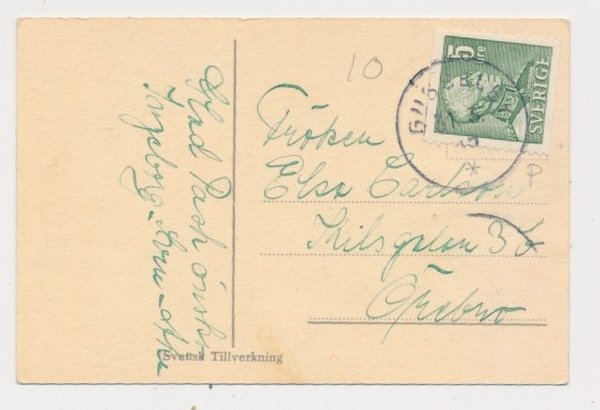 Glad Påsk önskar
Ingeborg
10
5 öre
SVERIGE
P
Fröken
Elsa Carlson
Kilsgatan
Örebro
Svensk Tillverkning